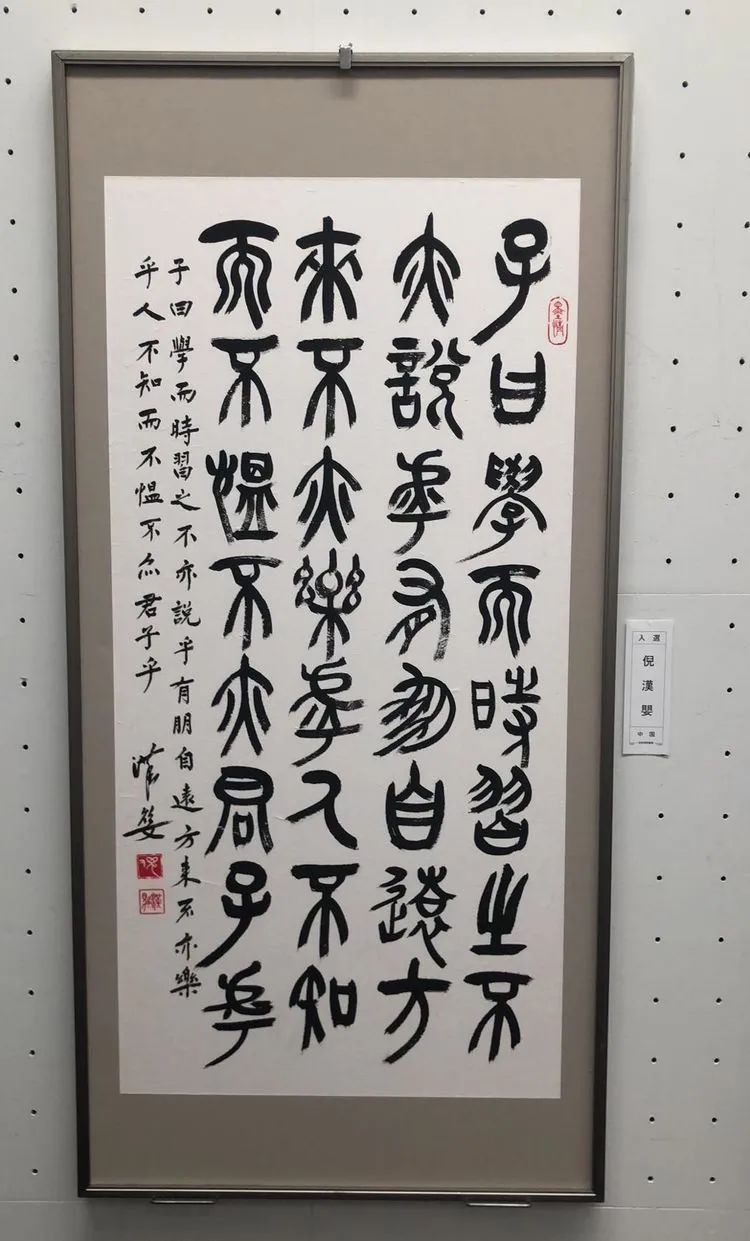 子曰學而時習之不
亦說乎有朋自遠方
來不亦樂乎人不知
而不慍不亦君子乎
子曰學而時習之不亦說乎有朋自遠方来不亦樂
乎人不知而不慍不亦君子乎
漢嬰
入選
倪漢嬰
中国